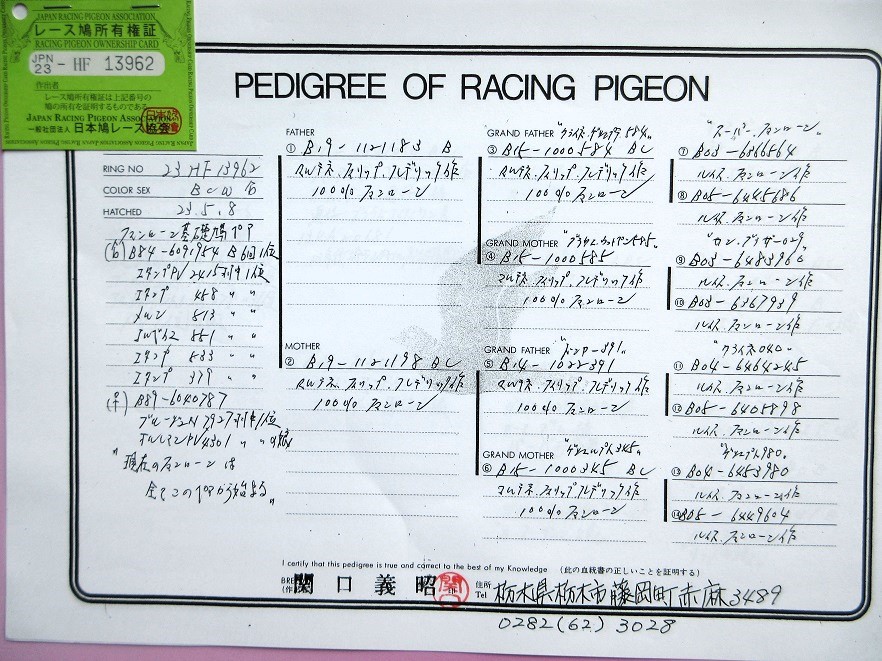 JAPAN RACING PIGEON ASSOCIATION
レース鳩所有権証
RACING PIGEON OWNERSHIP CARD
JPN 23 - HF 13962
作出者
レース鳩所有権証は上記番号の
鳩の所有を証明するものである
JAPAN RACING PIGEON ASSOCIATION
一般社団法人 日本鳩レース協会
PEDIGREE OF RACING PIGEON
RING NO 23HF13962
COLOR SEX BCW ♂
HATCHED 23.5.8
ファンローン基礎鳩ペア
(♂) B84-6091954 B 6回1位
エタンプN 2415羽中1位
エタンプ 458 〃 〃
メルン 813 〃 〃
851 〃 〃
エタンプ 533 〃 〃
エタンプ 379 〃 〃
(♀) B89-6040787
ブルージュN 7927羽中1位
4301 〃
"現在のファンローンは
全てこのペアから始まる"
FATHER
① B19-1121183 B
マルテネ.フィリップ.フレデリック作
100% ファンローン
MOTHER
② B19-1121198 BC
マルテネ.フィリップ.フレデリック作
100% ファンローン
GRAND FATHER 584"
③ B15-1000584 BC
マルテネ.フィリップ.フレデリック作
100% ファンローン
GRAND MOTHER 585"
④ B15-1000585
マルテネ.フィリップ.フレデリック作
100% ファンローン
GRAND FATHER "ドンカー391"
⑤ B14-1022391
マルテネ.フィリップ.フレデリック作
100% ファンローン
GRAND MOTHER 345"
⑥ B15-1000345 BC
マルテネ.フィリップ.フレデリック作
100% ファンローン
"スーパー.ファンローン"
⑦ B03-6366564
ルイス.ファンローン作
⑧ B05-6445686
ルイス.ファンローン作
029"
⑨ B03-6483966
ルイス.ファンローン作
⑩ B03-6367939
ルイス.ファンローン作
"クライネ040"
⑪ B04-6464245
ルイス.ファンローン作
⑫ B05-6405898
ルイス.ファンローン作
980"
⑬ B04-6453980
ルイス.ファンローン作
⑭ B05-6449604
ルイス.ファンローン作
I certify that this pedigree is true and correct to the best of my Knowledge (此の血統書の正しいことを証明する)
関口義昭
住所 Tel 栃木県栃木市藤岡町赤麻3489
0282(62)3028